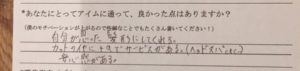 *あなたにとってアイムに通って、良かった点はありますか？
(僕のモチベーションが上がるので些細なことでもたくさん書いてください！)
自分が思った髪形にしてくれる。
カット以外にもサービスがある。(ヘッドスパとかetc)
安心感がある。